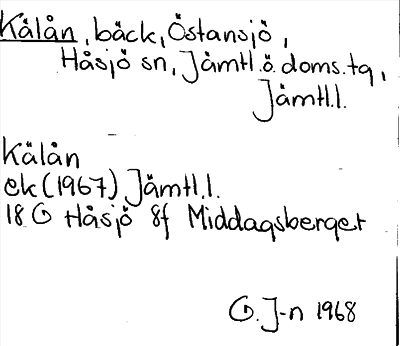 Kälån, bäck, Östansjö,
Håsjö sn, Jämtl.ö. doms.tg,
Jämtl.l.
Kälån
ek (1967) Jämtl.l.
18 G Håsjö 8f Middagsberget
G. J-n 1968